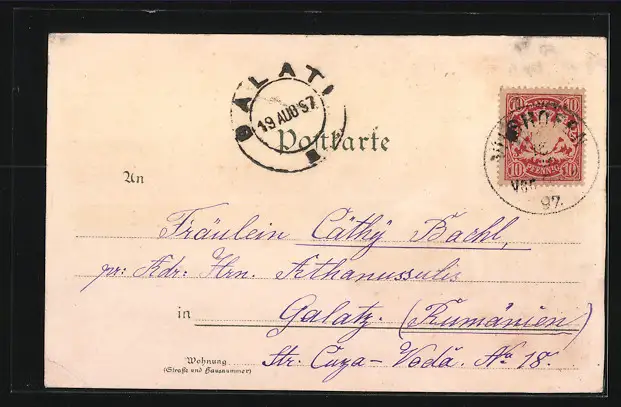 GALATI
19 AUG 97
Postkarte
10 10
PFENNIG
97.
An
Fräulein Cäthy Bachl,
pr. Adr. Hrn. Athanussulis
in Galatz. (Rumänien)
Wohnung
(Straße und Hausnummer)
Str. Cuza-Vodă. No 18.